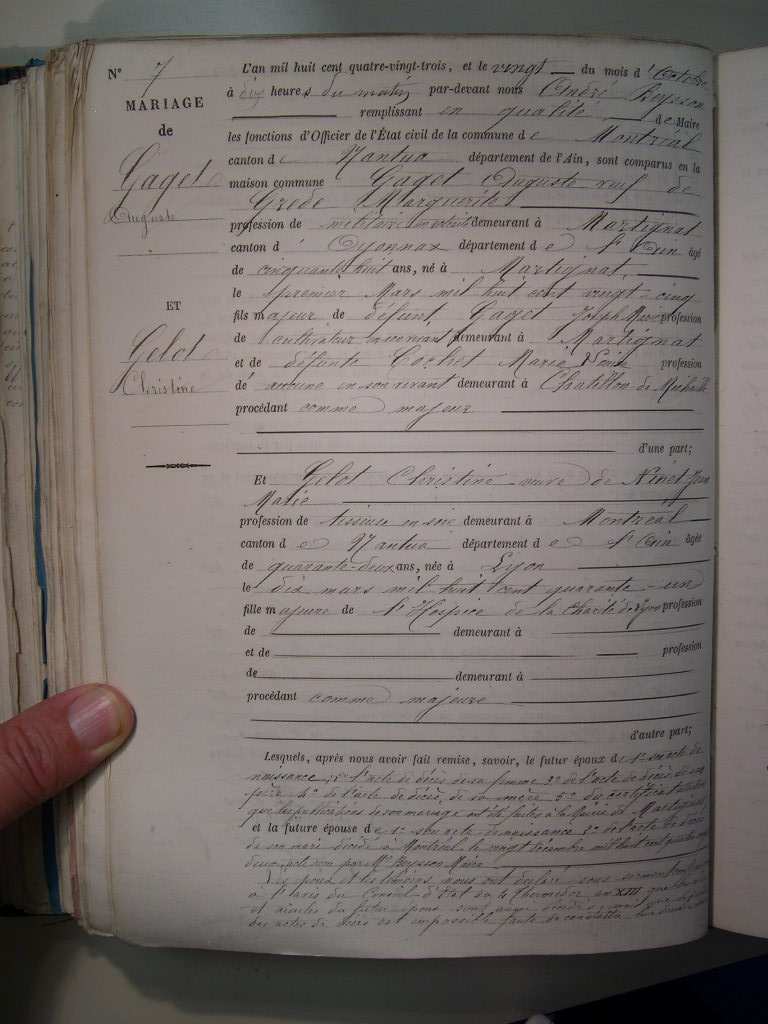 N° 7
MARIAGE
de
Gaget
Auguste
ET
Gelot
Christine
L'an mil huit cent quatre-vingt-trois, et le vingt du mois d'Octobre
à dix heures du matin par-devant nous André Beysson
remplissant en qualité de Maire
les fonctions d'Officier de l'État civil de la commune de Montréal
canton de Nantua département de l'Ain, sont comparus en la
maison commune Gaget Auguste veuf de
Grede Marguerite
profession de militaire en retraite demeurant à Martignat
canton d' Oyonnax département de l'Ain âgé
de cinquante huit ans, né à Martignat
le premier Mars mil huit cent vingt-cinq
fils majeur de défunt Gaget Joseph Marie profession
de cultivateur en son vivant demeurant à Martignat
et de défunte Cochet Marie profession
de aucune en son vivant demeurant à Chatillon de Michaille
procédant comme majeur
d'une part;
Et Gelot Christine veuve de Ninet Jean
Marie
profession de tisseuse en soie demeurant à Montréal
canton de Nantua département de l'Ain âgée
de quarante-deux ans, née à Lyon
le dix mars mil huit cent quarante-un
fille majeure de l'Hospice de la Charité de Lyon profession
de demeurant à
et de profession
de demeurant à
procédant comme majeure
d'autre part;
Lesquels, après nous avoir fait remise, savoir, le futur époux de 1° son acte de
naissance, 2° l'acte de décès de sa femme 3° de l'acte de décès de son
père 4° de l'acte de décès de sa mère 5° du certificat
que les publications de son mariage ont été faites à la Mairie de Martignat
et la future épouse de 1° son acte de naissance 2° de l'acte de décès
de son mari décédé à Montréal le vingt décembre mil huit cent quatre-vingt
deux, acte reçu par Mr Beysson Maire
Les époux et les témoins nous ont déclaré sous serment
à l'avis du Conseil d'Etat du 4 Thermidor an XIII que les
et aïeules du futur époux sont
des actes de décès est impossible faute de connaître leur dernier